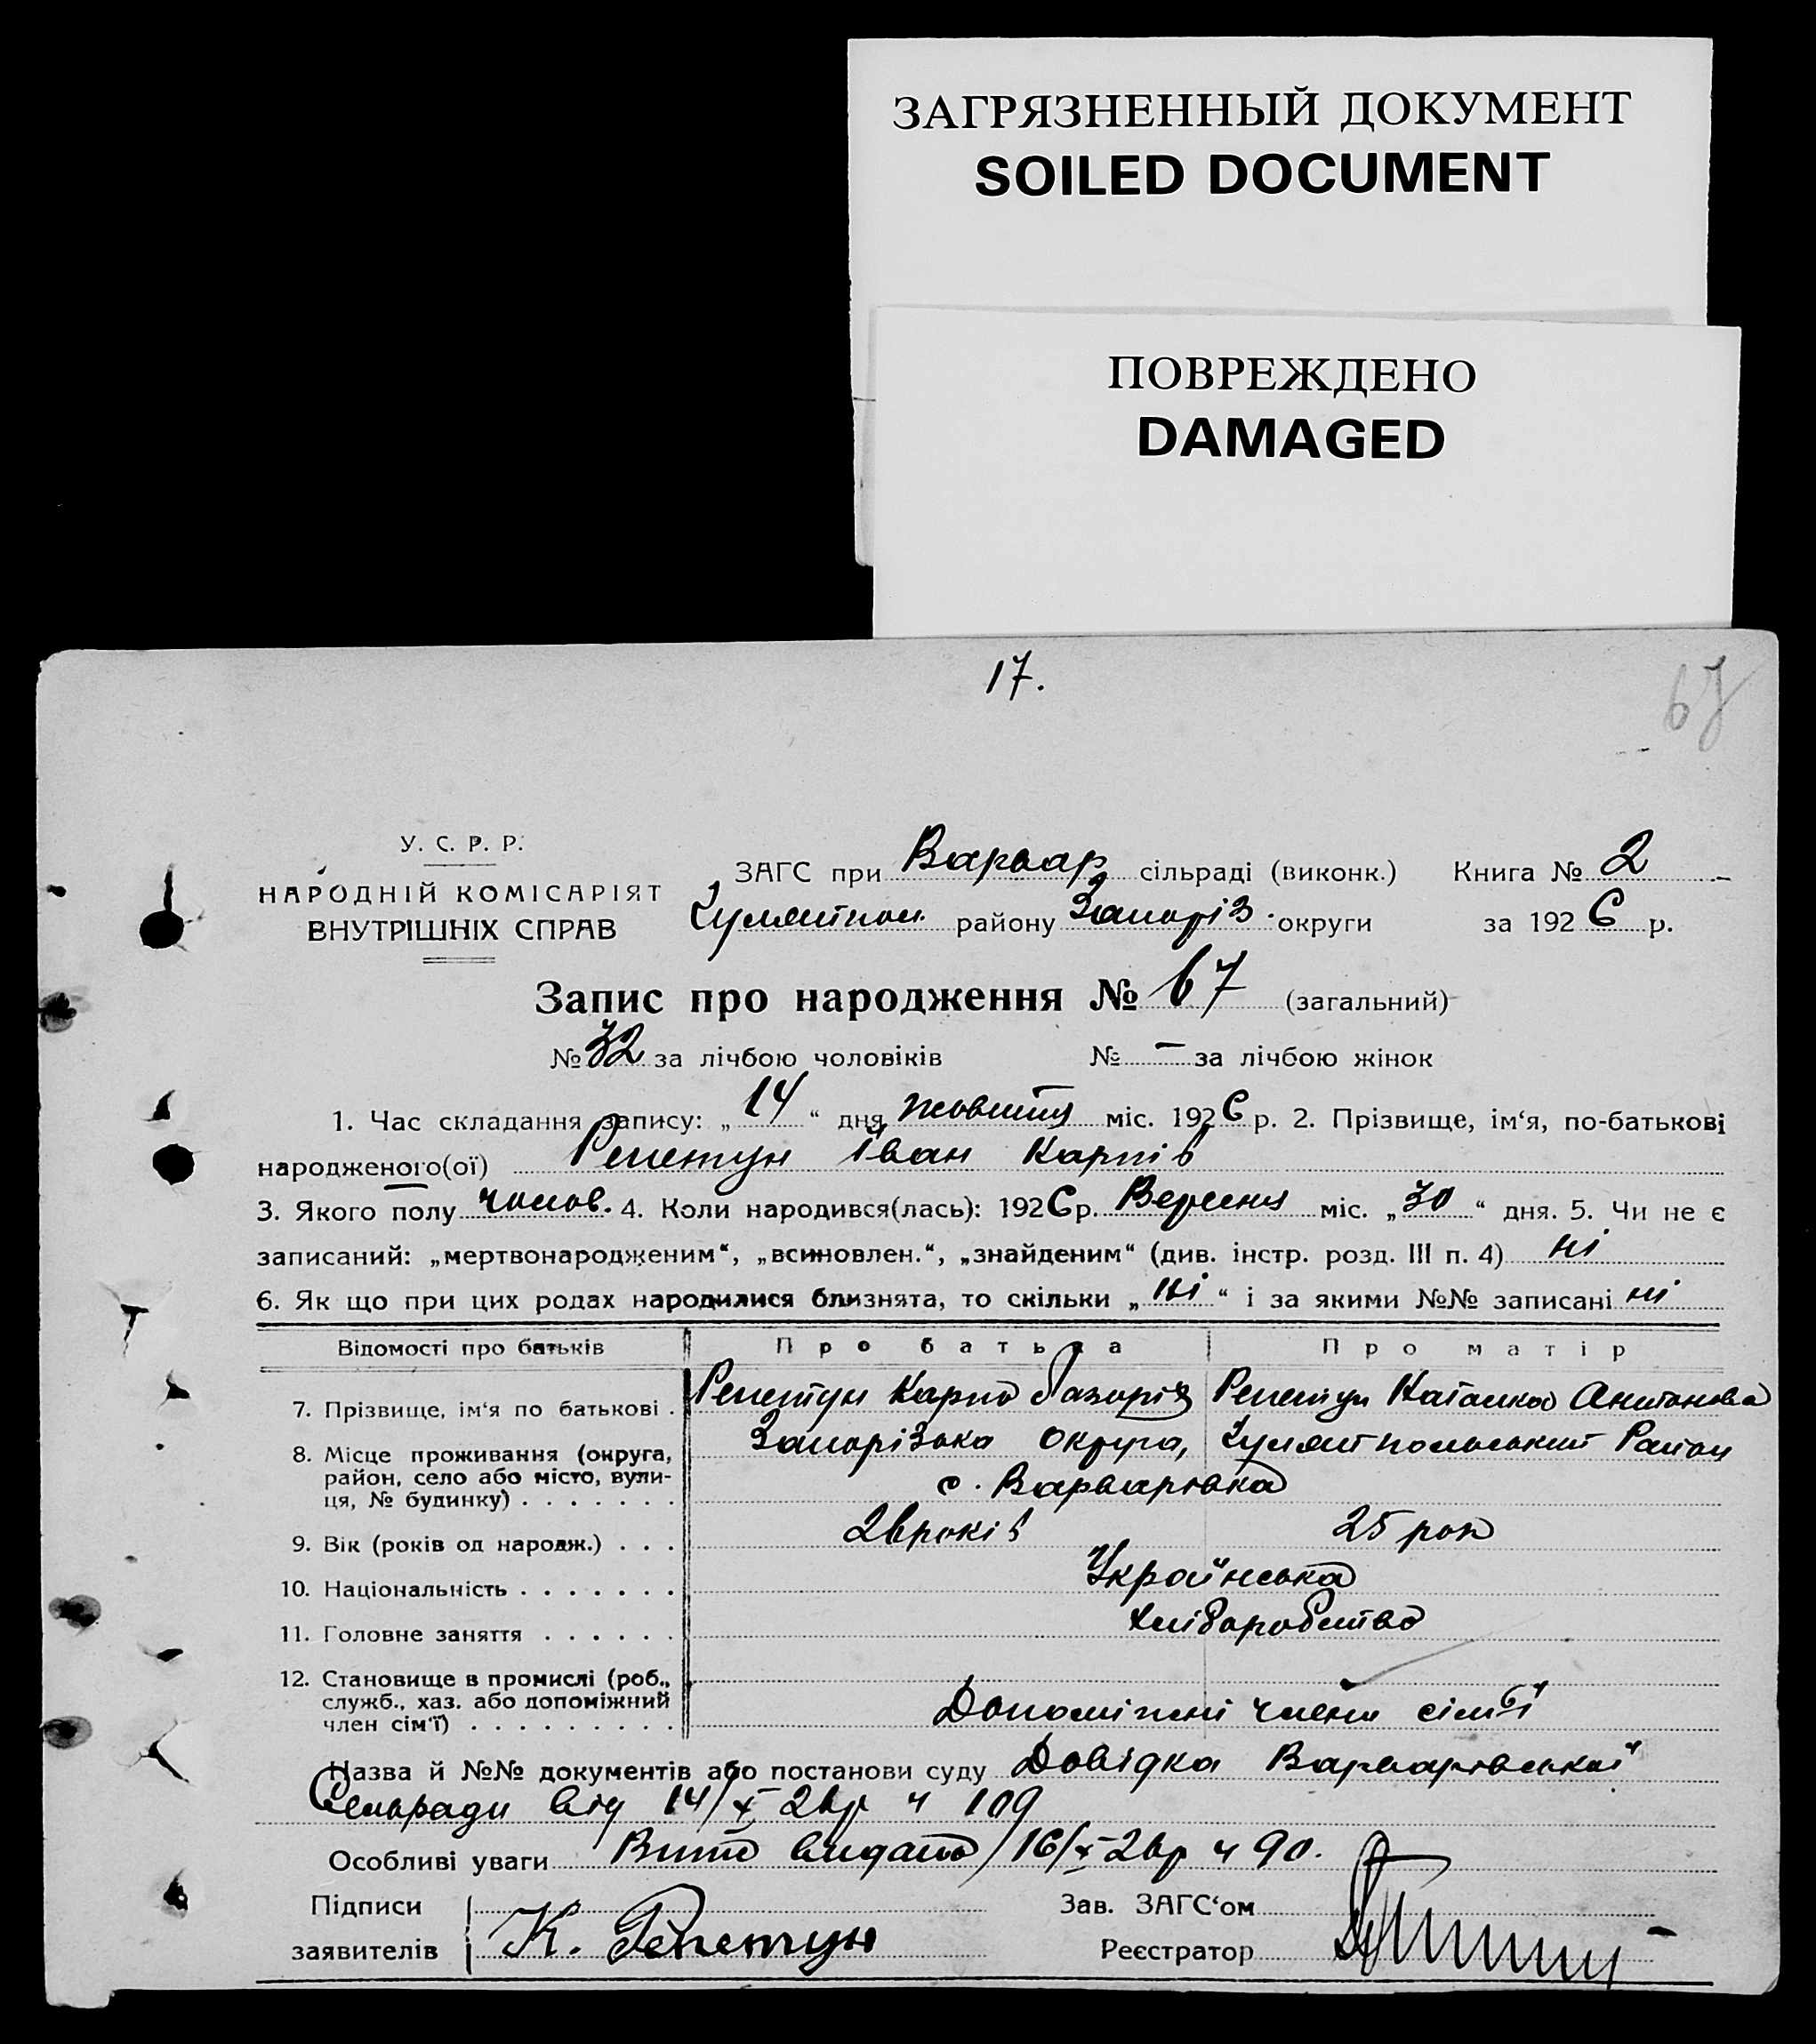 ЗАГРЯЗНЕННЫЙ ДОКУМЕНТ
SOILED DOCUMENT
ПОВРЕЖДЕНО
DAMAGED
17.
67
У. С. Р. Р.
НАРОДНІЙ КОМІСАРІЯТ
ВНУТРІШНІХ СПРАВ
ЗАГС при Варвар сільраді (виконк.) Книга № 2
Гуляйпол. району Запоріз. округи за 1926 р.
Запис про народження № 67 (загальний)
№ 32 за лічбою чоловіків № – за лічбою жінок
1. Час складання запису: „14“ дня жовтня міс. 1926 р. 2. Прізвище, ім‘я, по-батькові
народженого(ої) Репетун Іван Карпів
3. Якого полу чолов. 4. Коли народився(лась): 1926 р. Вересня міс. „30“ дня. 5. Чи не є
записаний: „мертвонародженим“, „всиновлен.“, „знайденим“ (див. інстр. розд. III п. 4) ні
6. Як що при цих родах народилися близнята, то скільки „ні“ і за якими №№ записані ні
Відомості про батьків Про батька Про матір
7. Прізвище, ім‘я по батькові . Репетун Карпо Репетун Наталка Антонова
8. Місце проживання (округа, район, село або місто, вули-ця, № будинку) . . . . . . . Запорізька округа, Гуляйпольський Район
с. Варварівка
9. Вік (років од народж.) . . . 26 років 25 рок
10. Національність . . . . . . . Українська
11. Головне заняття . . . . . . хліборобство
12. Становище в промислі (роб., служб., хаз. або допоміжний член сім‘ї) . . . . . . . . . Допоміжні члени сімї
Назва й №№ документів або постанови суду Довідка Варварівської
Сельради від 14/X 26р ч 109
Особливі уваги Витяг видано 16/X-26р ч 90.
Підписи Зав. ЗАГС‘ом
заявителів К. Репетун Реєстратор